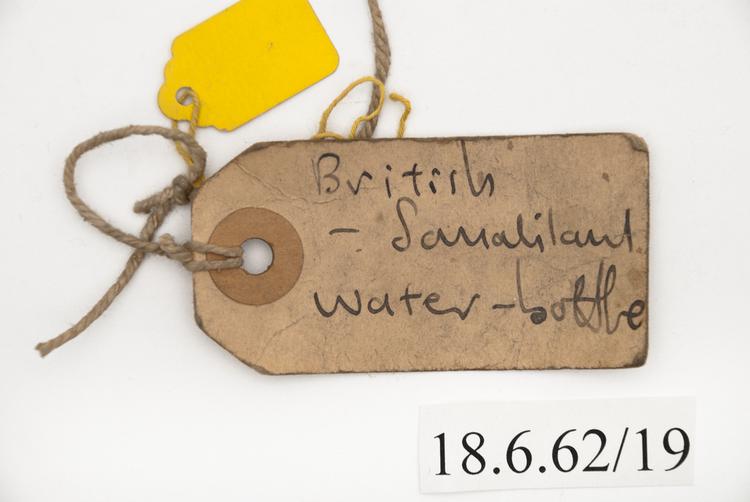 British
- Somaliland
water-bottle
18.6.62/19